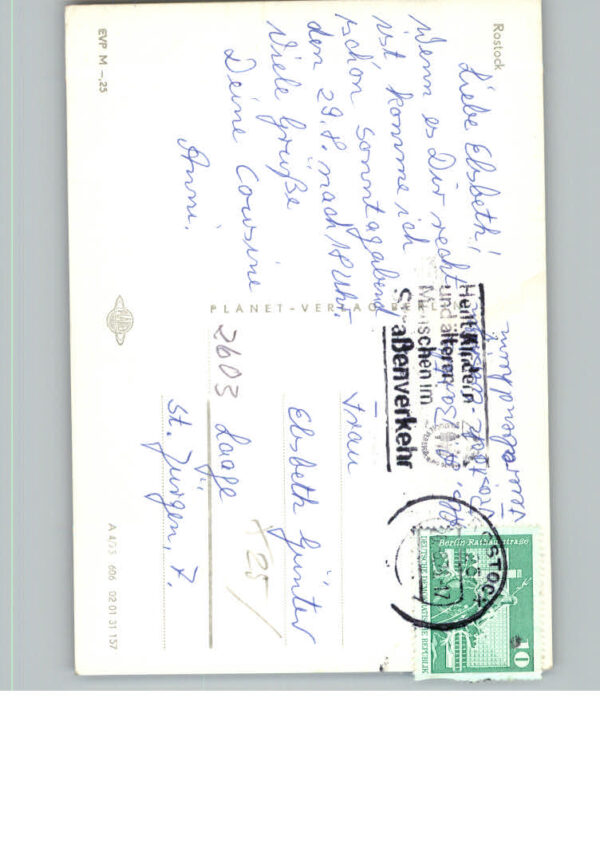 Rostock
Liebe Elsbeth!
Wenn es Dir recht
ist, komme ich
schon Sonntagabend
den 29.8. nach 18 Uhr.
Viele Grüße
Deine Cousine
Anni.
EVP M –,25
PLANET-VERLAG BERLIN
Helft Kindern
und älteren
Menschen im
Straßenverkehr
ROSTOCK
Berlin Rathausstraße
DEUTSCHE DEMOKRATISCHE REPUBLIK
10
Frau
Elsbeth Günter
2603 Laage
St. Jürgen, 7.
25
A 4/75 606 02 01 31 157